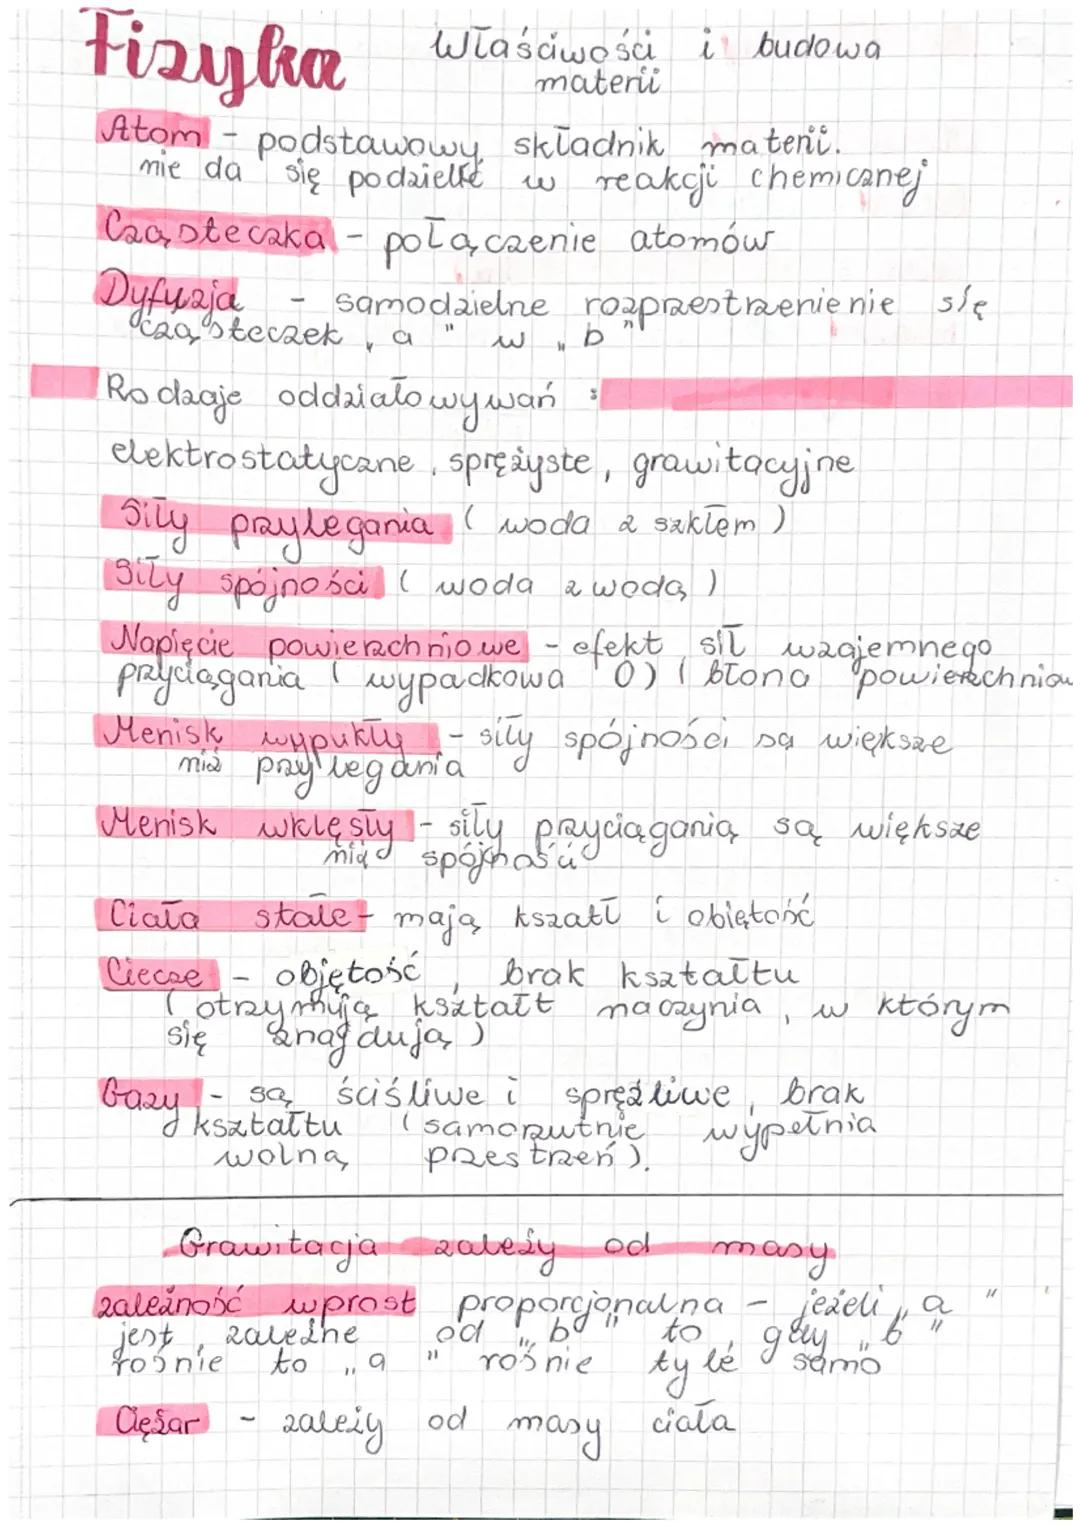 Fizyka Właściwości i budowa
materii
Atom - podstawowy składnik materii.
nie da się podzielić w reakcji chemicznej
Cząsteczka - połączenie atomów
Dyfuzja - samodzielne rozprzestrzenienie się
cząsteczek „a" w „b"
Rodzaje oddziałowywań :
elektrostatyczne, sprężyste, grawitacyjne
Siły przylegania ( woda z szkłem )
Siły spójności ( woda z wodą )
Napięcie powierzchniowe - efekt sił wzajemnego
przyciągania ( wypadkowa 0) ( błona powierzchniow
Menisk wypukły - siły spójności są większe
niż przylegania
Menisk wklęsły - siły przyciągania są większe
niż spójności
Ciała stałe - mają kształt i obiętość
Ciecze - objętość, brak kształtu
( otrzymują kształt naczynia, w którym
się znajdują )
Gazy - są ściśliwe i sprężliwe, brak
kształtu ( samorzutnie wypełnia
wolną przestrzeń ).
Grawitacja zależy od masy
zależność wprost proporcjonalna - jeżeli „a"
jest zależne od „b" to, gdy „b"
rośnie to „a" rośnie tyle samo
Ciężar - zależy od masy ciała